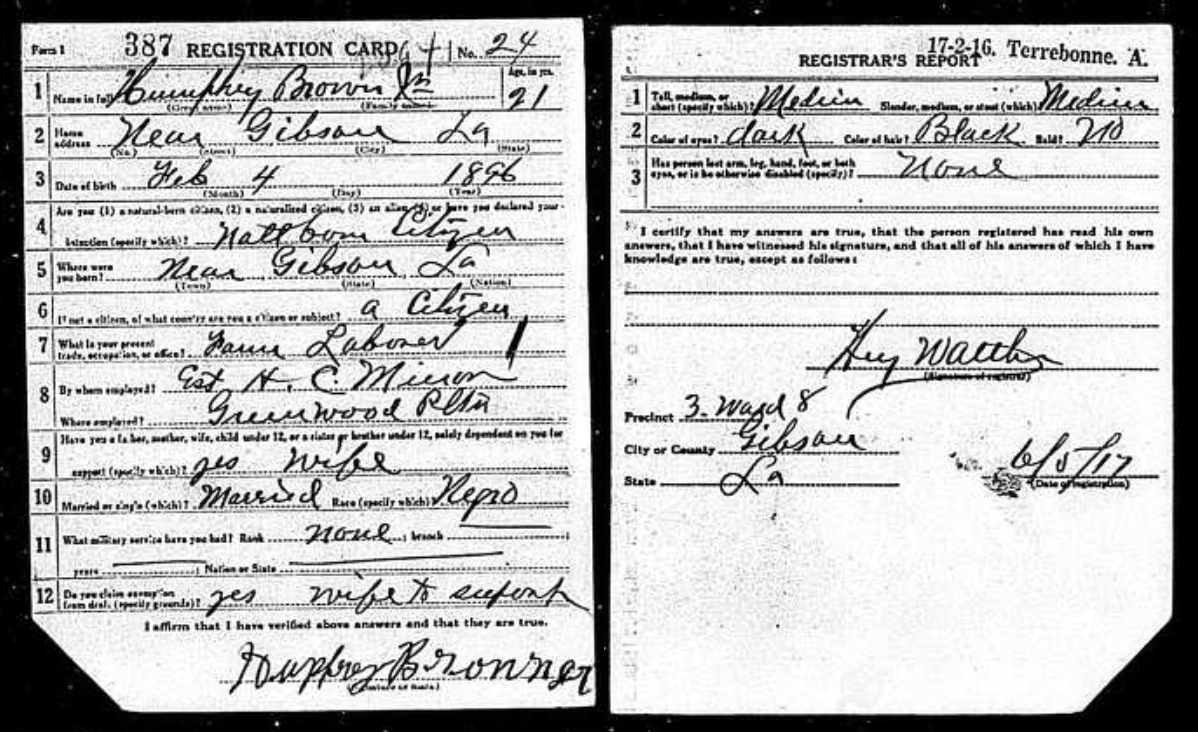 Form 1 387 REGISTRATION CARD No. 24
1 Name in full Humphrey Brown Jr Age, in yrs. 21
(Given name) (Family name)
2 Home address Near Gibson La
(No.) (Street) (City) (State)
3 Date of birth Feb 4 1896
(Month) (Day) (Year)
4 Are you (1) a natural-born citizen, (2) a naturalized citizen, (3) an alien, (4) or have you declared your
intention (specify which)? Natl born Citizen
5 Where were you born? Near Gibson La
(Town) (State) (Nation)
6 If not a citizen, of what country are you a citizen or subject? a Citizen
7 What is your present trade, occupation, or office? Farm Laborer
8 By whom employed? Est H. C. Minor
Where employed? Greenwood Pltn
9 Have you a father, mother, wife, child under 12, or a sister or brother under 12, solely dependent on you for
support (specify which)? yes wife
10 Married or single (which)? Married Race (specify which)? Negro
11 What military service have you had? Rank none ; branch
years ; Nation or State
12 Do you claim exemption from draft (specify grounds)? yes wife to suport
I affirm that I have verified above answers and that they are true.
Hupfrey Brown
(Signature or mark)
17-2-16. Terrebonne. A.
REGISTRAR'S REPORT
1 Tall, medium, or short (specify which)? Medium Slender, medium, or stout (which)? Medium
2 Color of eyes? dark Color of hair? Black Bald? no
3 Has person lost arm, leg, hand, foot, or both eyes, or is he otherwise disabled (specify)? None
I certify that my answers are true, that the person registered has read his own
answers, that I have witnessed his signature, and that all of his answers of which I have
knowledge are true, except as follows:
(Signature of registrar)
Precinct 3. Ward 8
City or County Gibson
State La
6/5/17
(Date of registration)